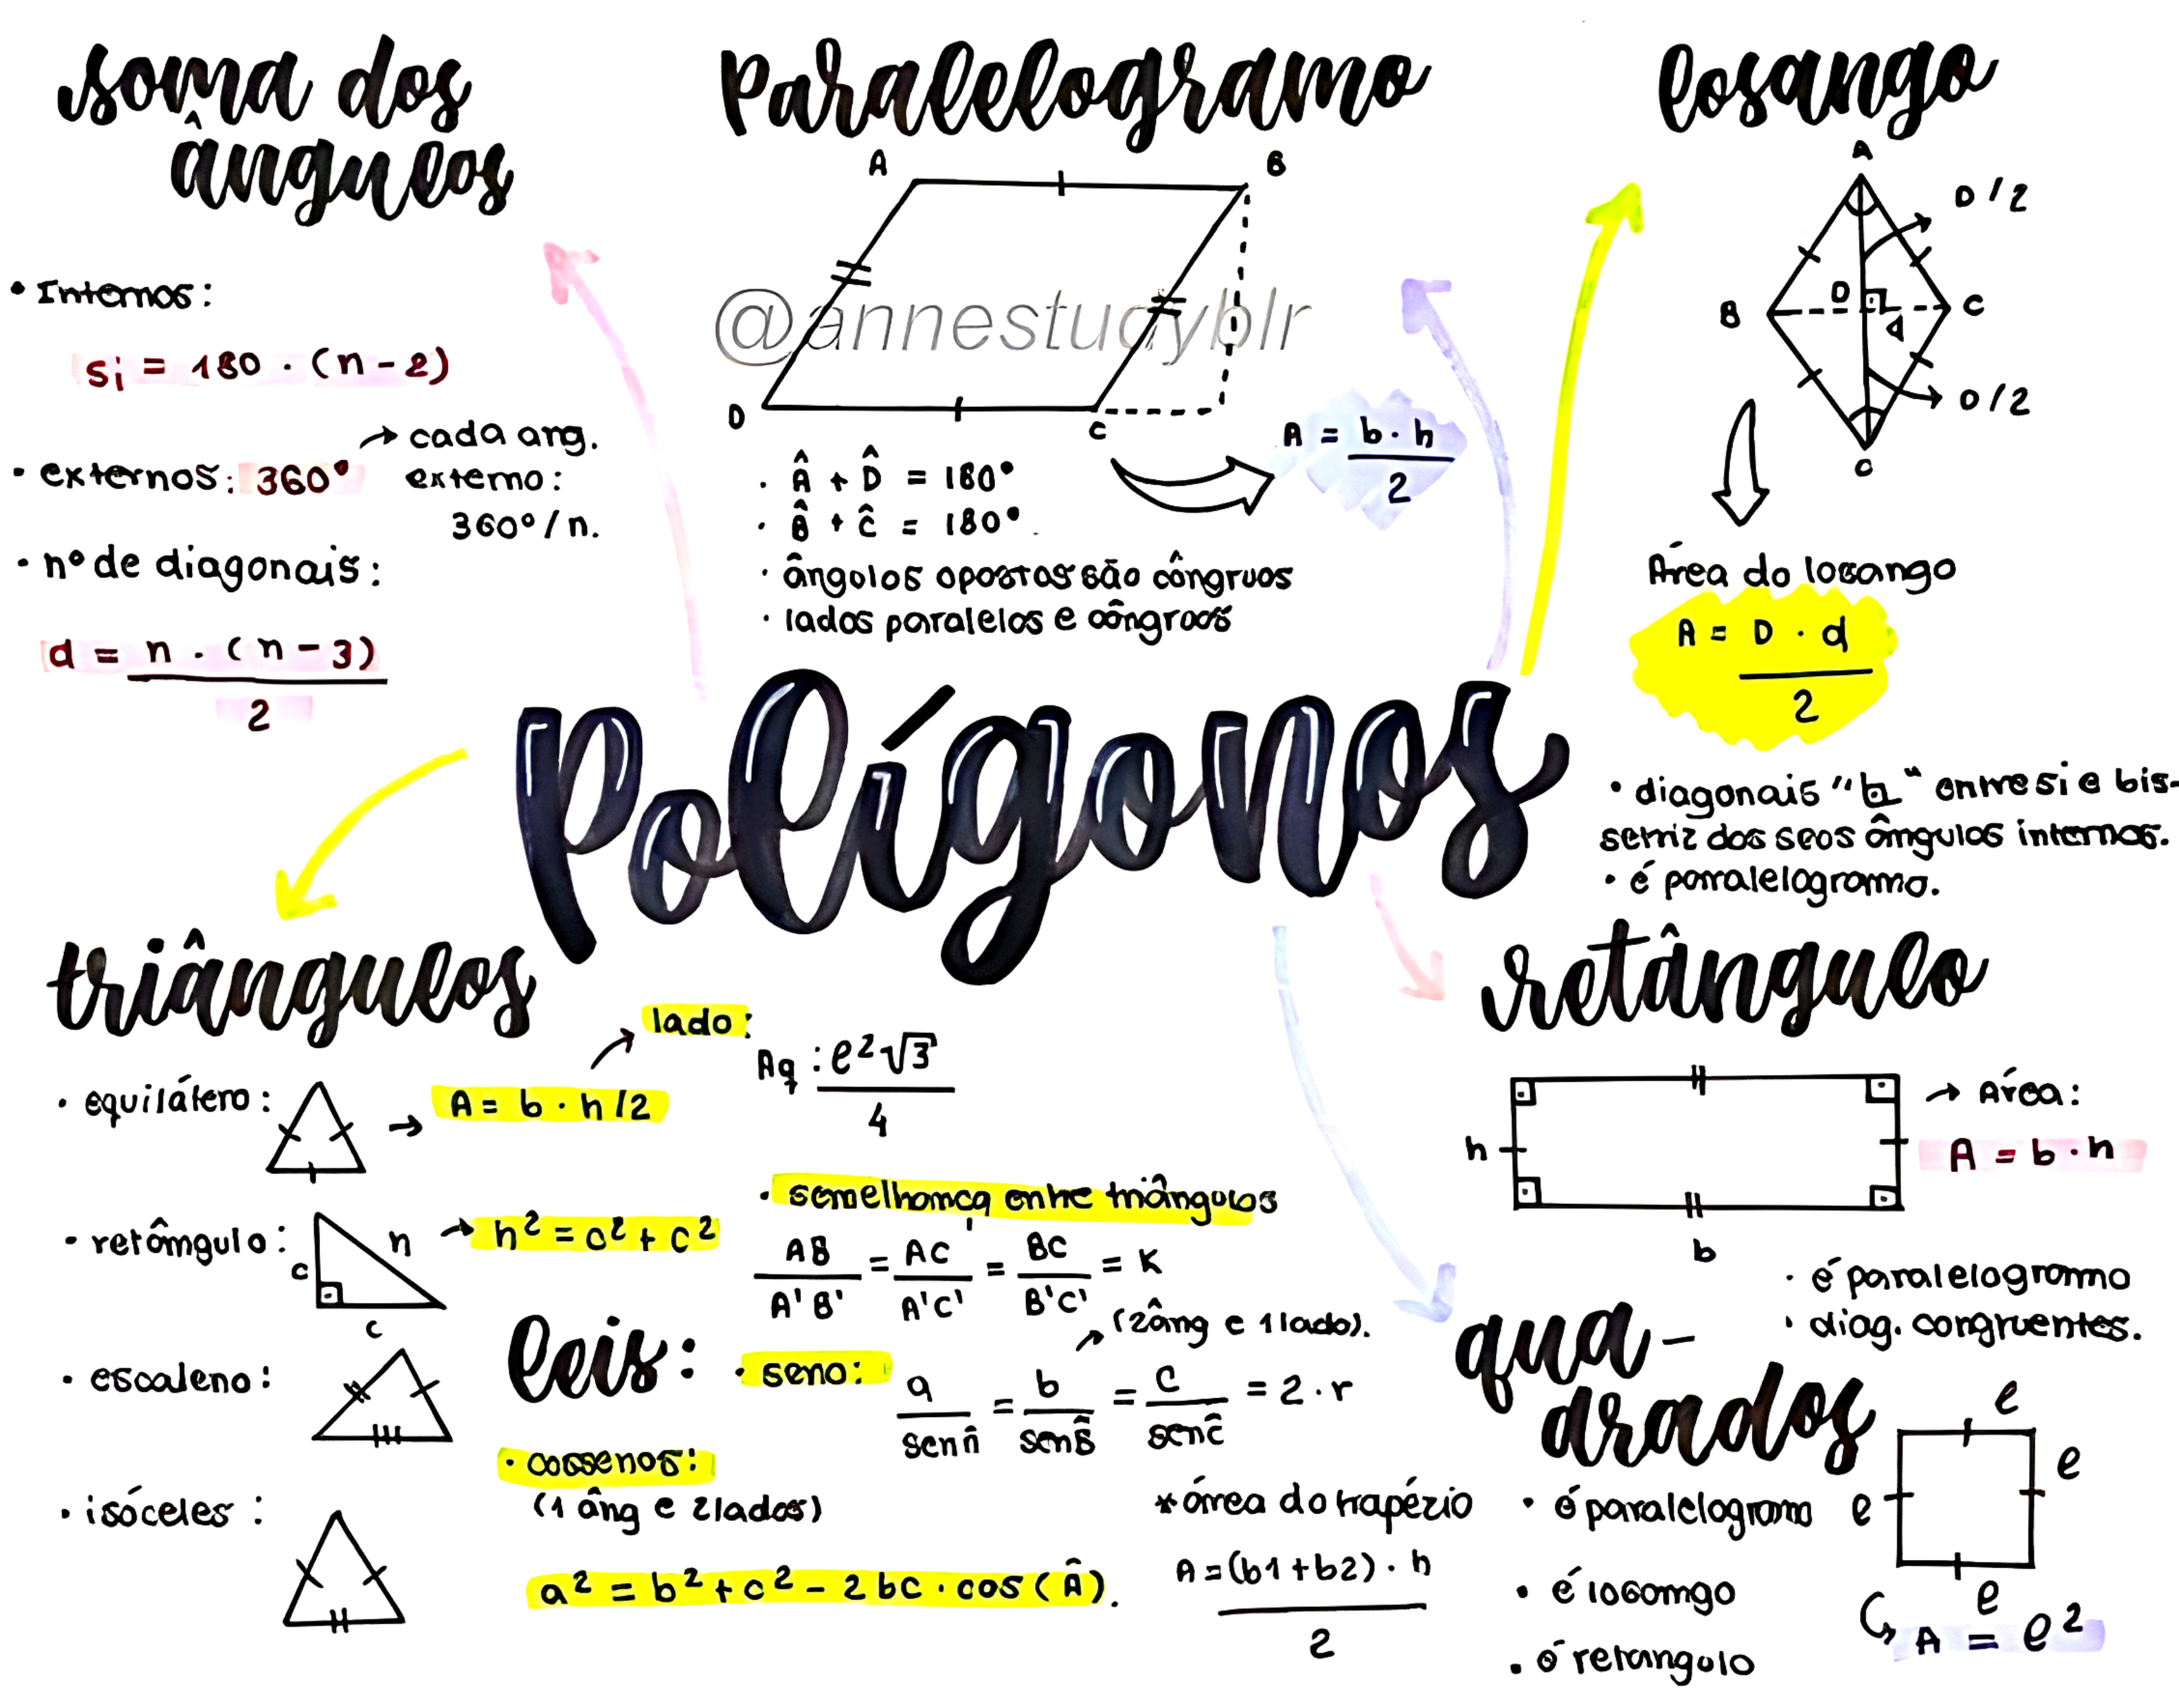 soma dos
ângulos
• Internos:
Si = 180 · (n-2)
• externos: 360° → cada ang.
externo:
360°/n.
• nº de diagonais:
d = n · (n-3)
2
Paralelogramo
A B
D C
@annestudyblr
· Â + D̂ = 180°
· B̂ + Ĉ = 180°.
· ângulos opostos são côngruos
· lados paralelos e côngruos
A = b · h
2
losango
A
D/2
B D d C
D/2
Área do losango
A = D · d
2
• diagonais "⊾" entre si e bis-
setriz dos seos ângulos internos.
• é paralelogramo.
Polígonos
triângulos
• equilátero: → A = b · h/2
lado:
Aq : ℓ²√3
4
• retângulo: c h c → h² = c² + c²
• escaleno:
• isóceles:
• semelhança entre triângulos
AB = AC = BC = K
A'B' A'C' B'C'
leis:
• seno: (2âng e 1lado).
a = b = c = 2·r
senÂ senB̂ senĈ
• cossenos:
(1 âng e 2lados)
a² = b² + c² - 2bc · cos(Â).
*área do trapézio
A = (b1+b2) · h
2
retângulo
h
b
→ Área:
A = b · h
· é paralelogramo
· diag. congruentes.
qua-
drados
• é paralelogramo
• é losango
• é retangulo
ℓ
ℓ
ℓ
ℓ
A = ℓ²